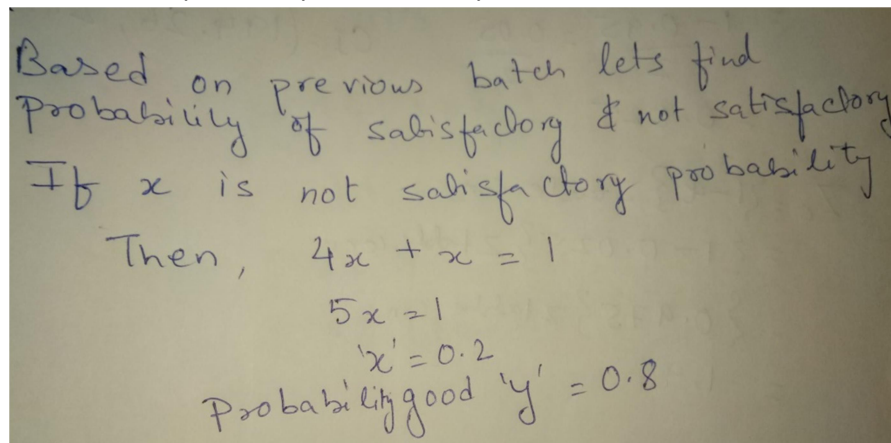 Based on previous batch lets find
probability of satisfactory & not satisfactory
If x is not satisfactory probability
Then, 4x + x = 1
5x = 1
'x' = 0.2
Probability good 'y' = 0.8